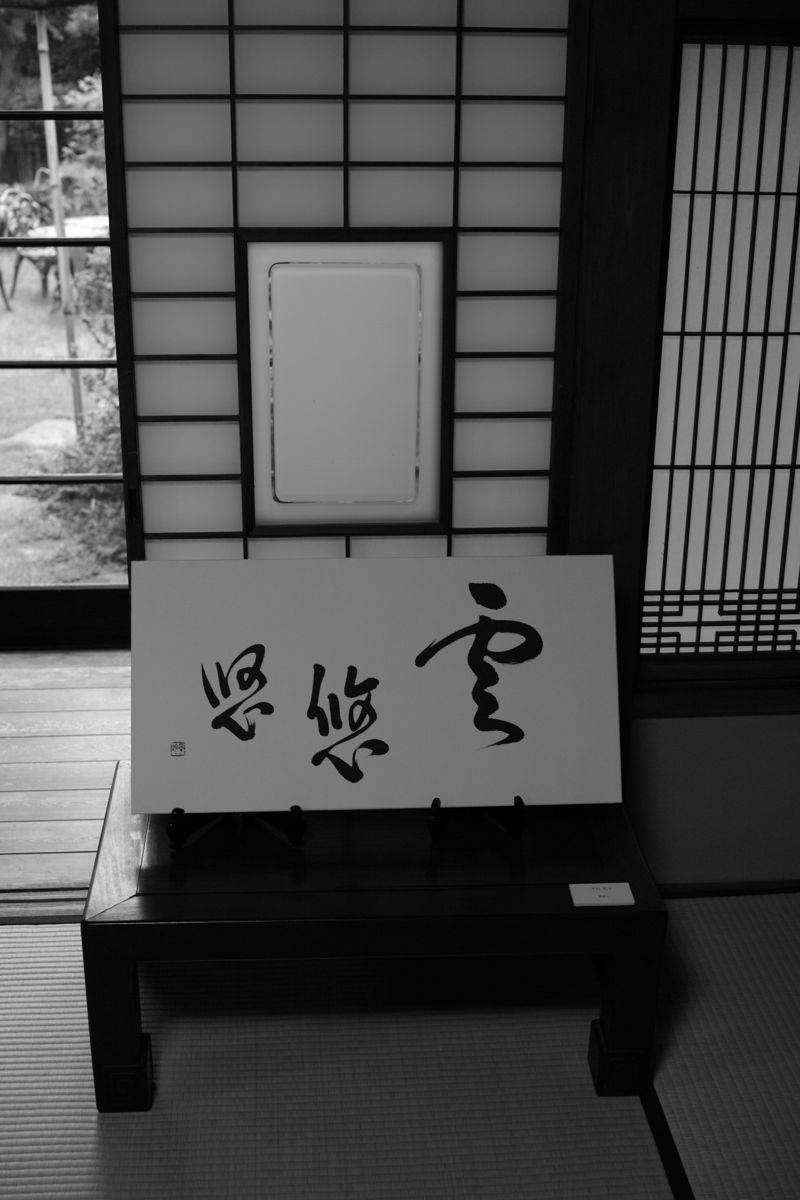 雲悠悠